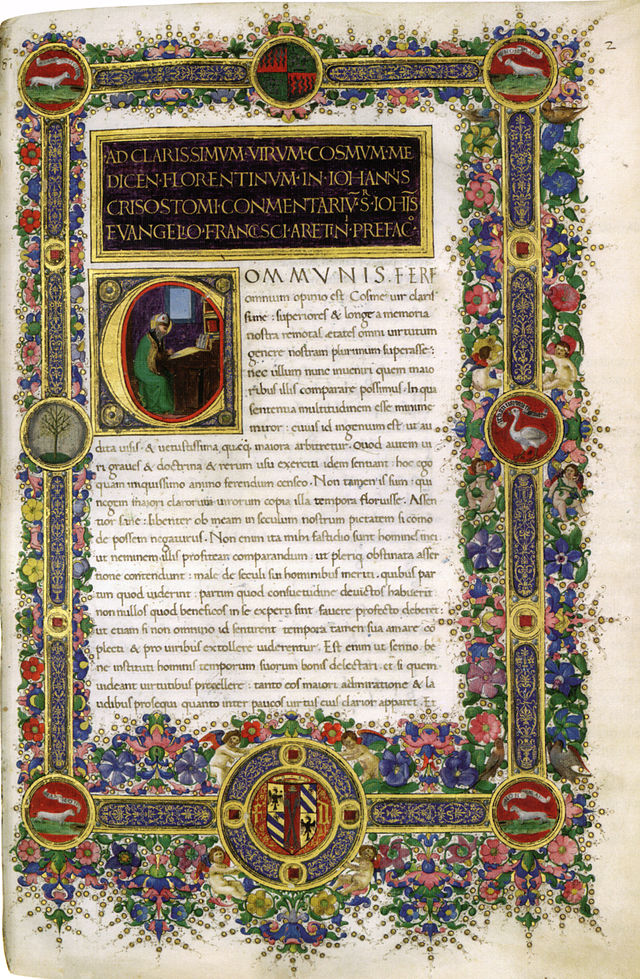 2
AD CLARISSIMVM·VIRVM·COSMVM·ME
DICEN·FLORENTINVM·IN·IOHANNS
CRISOSTOMI·CONMENTARIV̄·SR·IOHĪS
EVANGELIO·FRANCSCI·ARETIN·PREFAC̄
COMMVNIS. FERE
omnium opinio est Cosme uir claris
sime : superiores & longe a memoria
nostra remotas etates omni uirtutum
genere nostram plurimum superasse :
nec ullum nunc inueniri quem maio
ribus illis comparare possimus. In qua
sententia multitudinem esse minime
miror : cuius id ingenium est ut au
dita uisis · & uetustissima quęq; maiora arbitretur. Quod autem ui
ri graues & doctrina & rerum usu exerciti idem sentiant : hoc ego
quam iniquissimo animo ferendum censeo. Non tamen is sum : qui
negem maiori clarorum uirorum copia illa tempora floruisse. Assen
tior sane : libenter ob meam in seculum nostrum pietatem si commo
de possem negaturus. Non enim ita mihi fastidio sunt homines mei
ut neminem illis profitear comparandum : ut pleriq; obstinata asser
tione contendunt : male de seculi sui hominibus meriti · quibus par
tim quod uiderint : partim quod consuetudine deuictos habuerint
non nullos quod beneficos in se experti sint fauere profecto deberent :
ut etiam si non omnino id sentirent tempora tamen sua amare co
plecti & pro uiribus extollere uiderentur. Est enim ut senno. be
ne instituti hominis temporum suorum bonis delectari · et si quem
uideant uirtutibus precellere : tanto eos maiori admiratione & la
udibus prosequi quanto inter paucos uirtus eius clarior apparet. Et